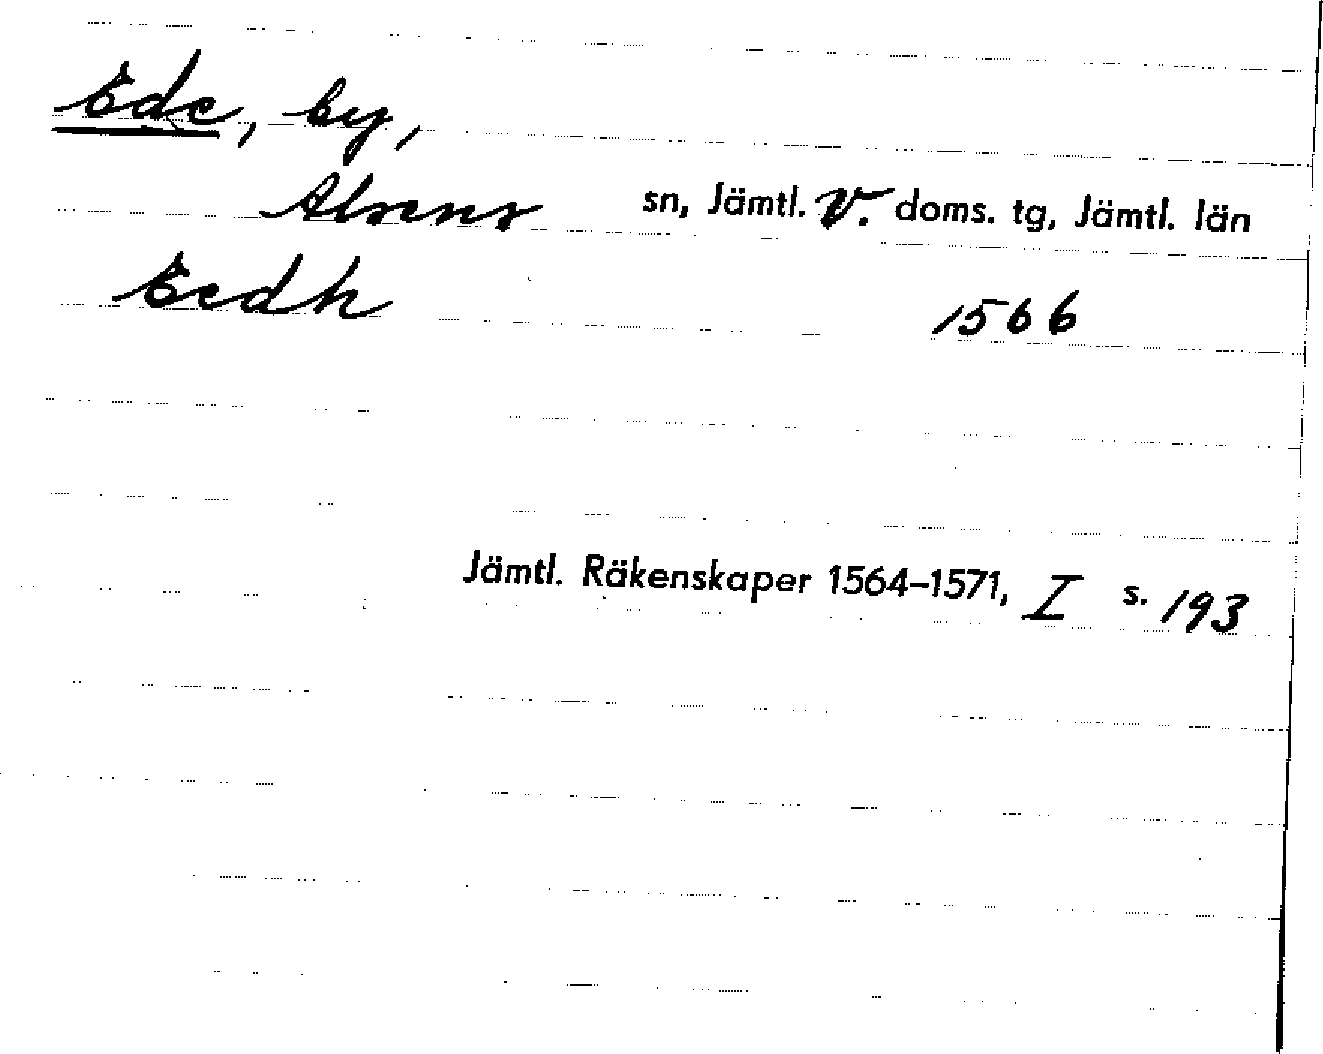 Ede, by,
Alsens sn, Jämtl. V. doms. tg, Jämtl. län
Eedh 1566
Jämtl. Räkenskaper 1564–1571, I s. 193